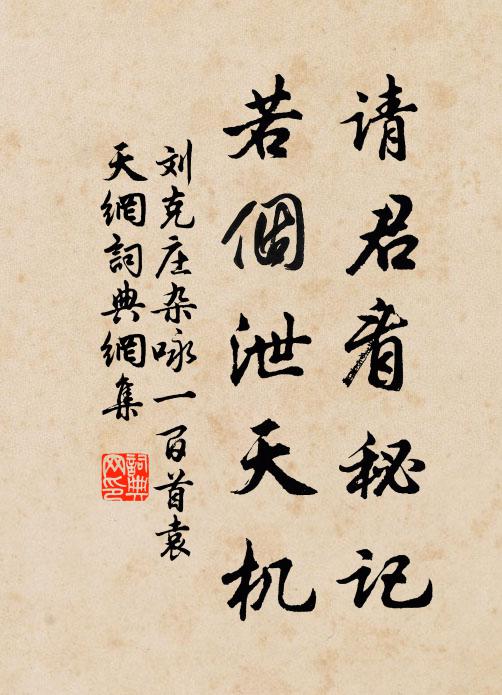 请君看秘记
若個泄天机
刘克庄杂咏一百首袁
天網詞典網集
詞典
网印